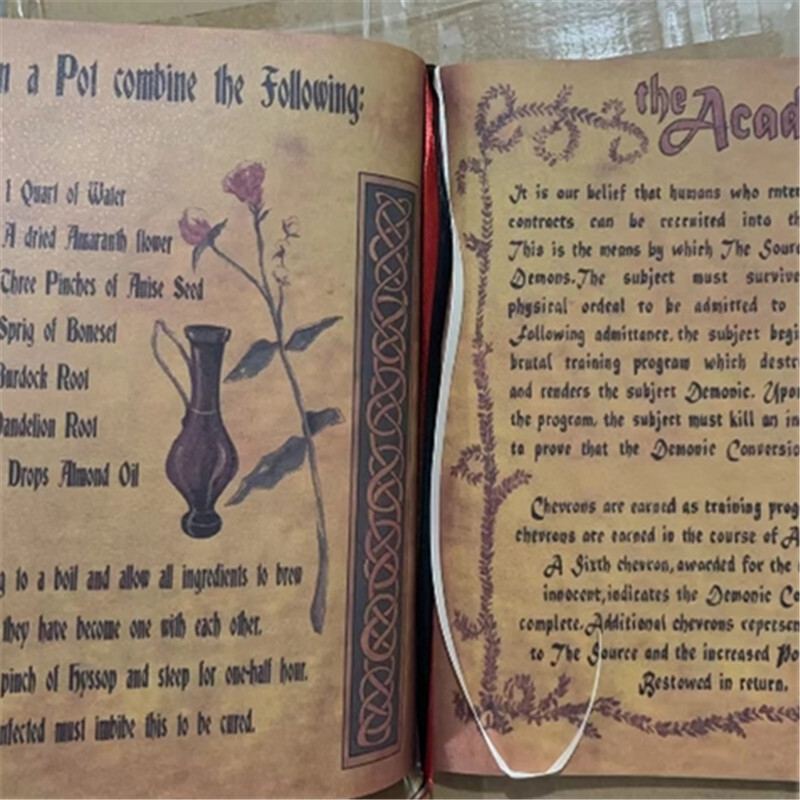 n a Pot combine the Following:
1 Quart of Water
A dried Amaranth flower
Three Pinches of Anise Seed
Sprig of Boneset
Burdock Root
Dandelion Root
Drops Almond Oil
g to a boil and allow all ingredients to brew
they have become one with each other.
pinch of Hyssop and sleep for one-half hour.
nfected must imbibe this to be cured.
the Acad
It is our belief that humans who enter
contracts can be recruited into th
This is the means by which The Sour
Demons.The subject must survive
physical ordeal to be admitted to
Following admittance, the subject begi
brutal training program which destr
and renders the subject Demonic. Upon
the program, the subject must kill an in
to prove that the Demonic Conversio
Chevrons are earned as training prog
chevrons are earned in the course of A
A Sixth chevron, awarded for the
innocent, indicates the Demonic Co
complete. Additional chevrons represen
to The Source and the increased Po
Bestowed in return.